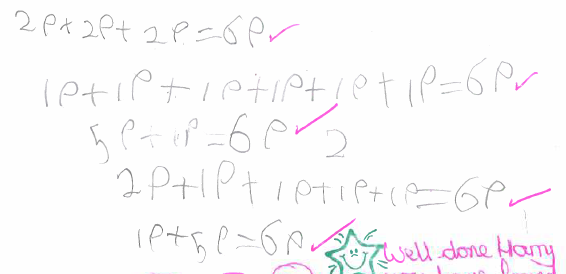 2p+2p+2p=6p
1p+1p+1p+1p+1p+1p=6p
5p+1p=6p 2
2p+1p+1p+1p+1p=6p
1p+5p=6p
Well done Harry